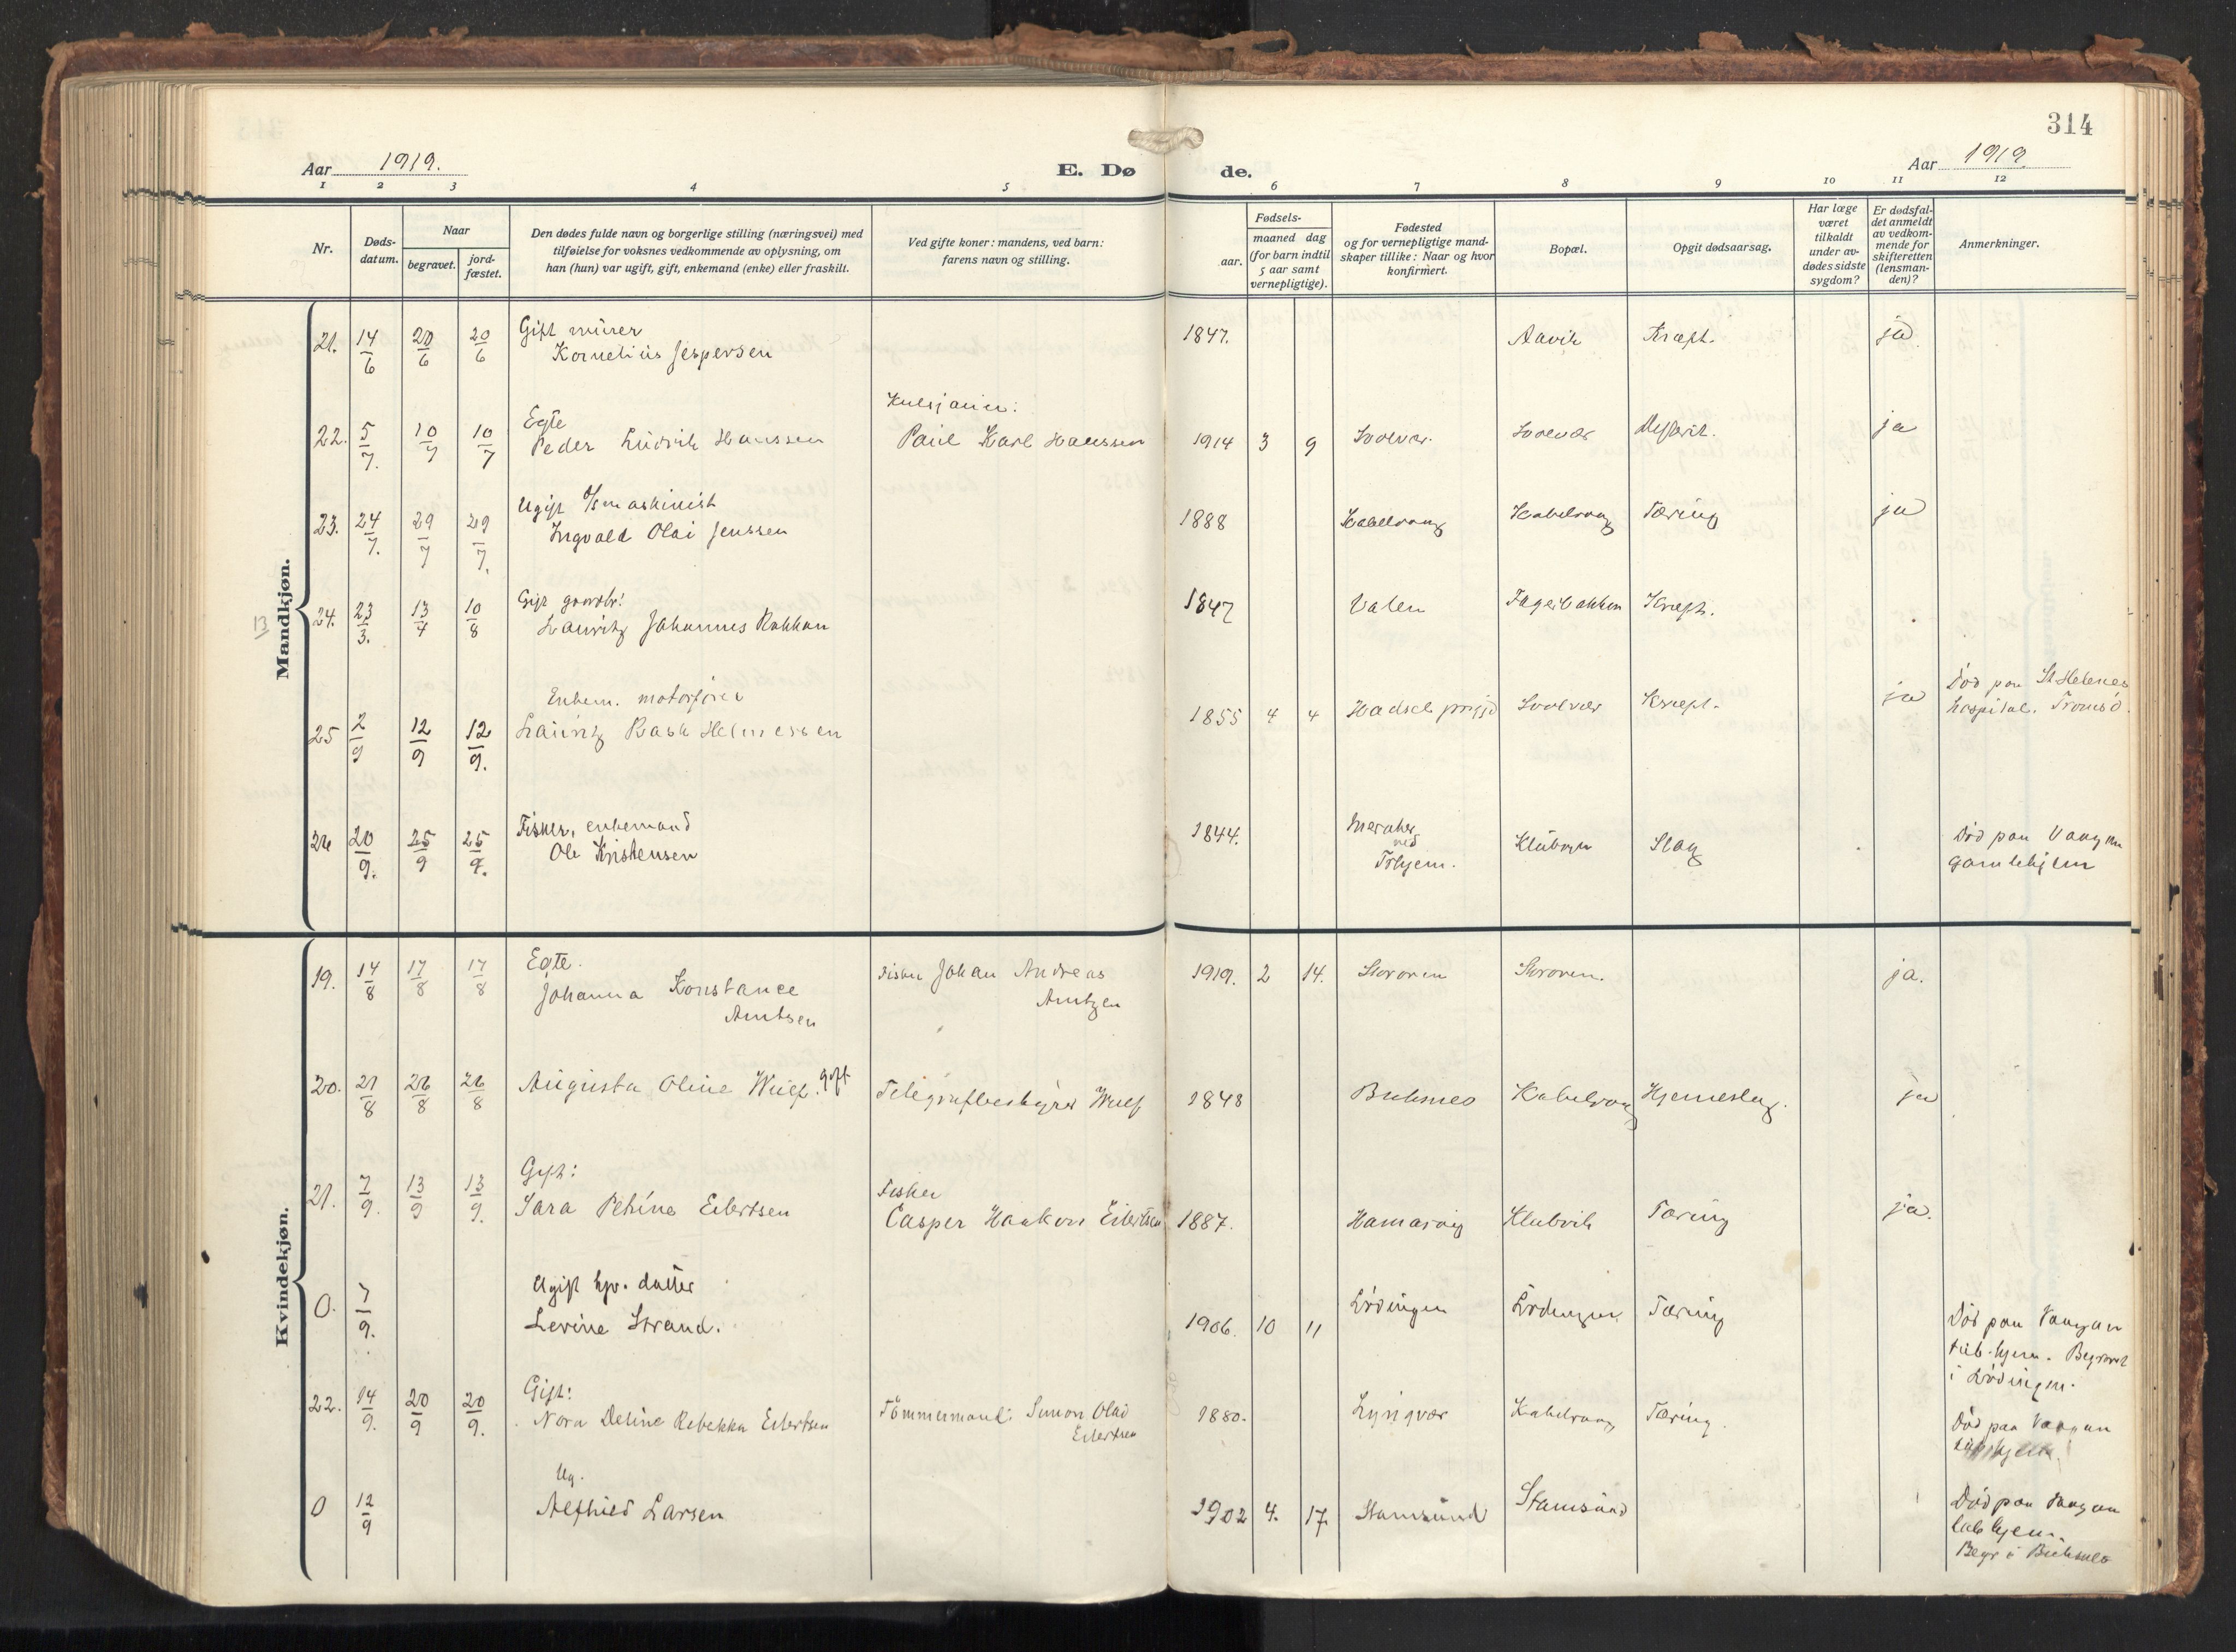 314
Aar 1919.
E. Dø
de.
Aar 1919
1 2 3 4 5 6 7 8 9 10 11 12
Nr.
Døds-
datum.
Naar
begravet.
jord-
fæstet.
Den dødes fulde navn og borgerlige stilling (næringsvei) med
tilføielse for voksnes vedkommende av oplysning, om
han (hun) var ugift, gift, enkemand (enke) eller fraskilt.
Ved gifte koner: mandens, ved barn:
farens navn og stilling.
Fødsels-
aar.
maaned dag
(for barn indtil
5 aar samt
vernepligtige).
Fødested
og for vernepligtige mand-
skaper tillike: Naar og hvor
konfirmert.
Bopæl.
Opgit dødsaarsag.
Har læge
været
tilkaldt
under av-
dødes sidste
sygdom?
Er dødsfal-
det anmeldt
av vedkom-
mende for
skifteretten
(lensman-
den)?
Anmerkninger.
Mandkjøn.
Gift murer
21. 14/6 20/6 20/6 Kornelius Jespersen 1847. Aavik Kræft. ja
Egte
22. 5/7. 10/7 10/7 Peder Ludvik Hanssen Paul Karl Hanssen 1914 3 9 Svolvær. Svolvær ja
Ugift maskinist
23. 24/7. 29/7 29/7. Ingvald Olai Jenssen 1888 Kabelvaag Kabelvaag Tæring ja
Gift gaardbr.
13
24. 23/3. 13/4 10/8 Lauritz Johannes Rakkan 1847 Valen Fagerbakken Kræft.
Enkem. motorfører
25 2/9 12/9 12/9. Lauritz Rask Helmessen 1855 4 4 Hadsel prgjd Svolvær Kræft. ja Død paa St Helenes
hospital. Tromsø.
Fisker, enkemand
26 20/9. 25/9 25/9. Ole Kristensen 1844. Meraker
ved
Trhjem. Slag Død paa Vaagan
gamlehjem
Kvindekjøn.
Egte.
19. 14/8 17/8 17/8 Johanna Konstance
Arntsen
Fisker Johan Andreas
Arntzen
1919. 2 14. Storøren Storøren. ja.
20. 21/8 26/8 26/8 Augusta Oline Wulf. gift Telegrafbestyrer Wulf 1848 Buksnes Kabelvaag Hjerneslag. ja
Gift:
21. 7/9. 13/9 13/9. Sara Petrine Eilertsen
Fisker
Casper Haakon Eilertsen 1887. Hamarøy Klubvik Tæring ja.
Ugift hjv. datter
0. 7/9. Levine Strand. 1906. 10 11 Lødingen Lødingen Tæring Død paa Vaagan
tub.hjem. Begravet
i Lødingen.
Gift:
22. 14/9. 20/9 20/9. Nora Deline Rebekka Eilertsen Tømmermand: Simon Olai
Eilertsen
1880. Lyngvær Kabelvaag Tæring. Død paa Vaagan
tubhjem.
Ug.
0 12/9 Alfhild Larsen 1902 4. 17. Stamsund Stamsund Død paa Vaagan
tub hjem.
Begr i Buksnes